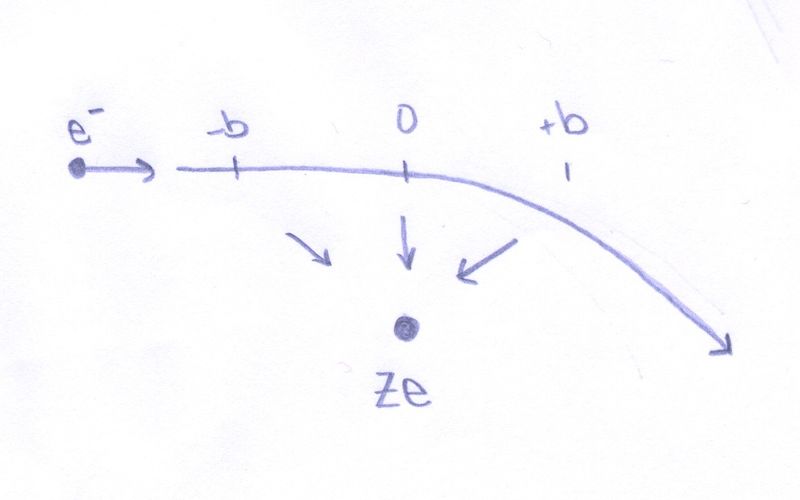 e⁻ -b 0 +b
Ze